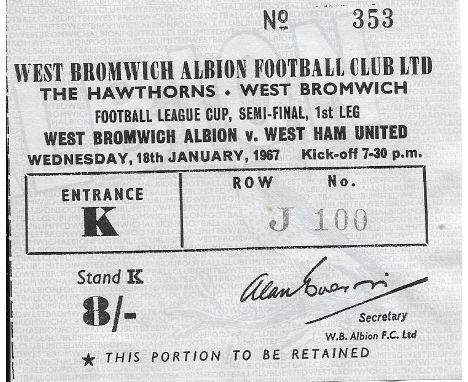 Nº 353
WEST BROMWICH ALBION FOOTBALL CLUB LTD
THE HAWTHORNS · WEST BROMWICH
FOOTBALL LEAGUE CUP, SEMI-FINAL, 1st LEG
WEST BROMWICH ALBION v. WEST HAM UNITED
WEDNESDAY, 18th JANUARY, 1967 Kick-off 7-30 p.m.
ENTRANCE
K
ROW No.
J 100
Stand K
8/-
Alan
Secretary
W.B. Albion F.C. Ltd
★ THIS PORTION TO BE RETAINED